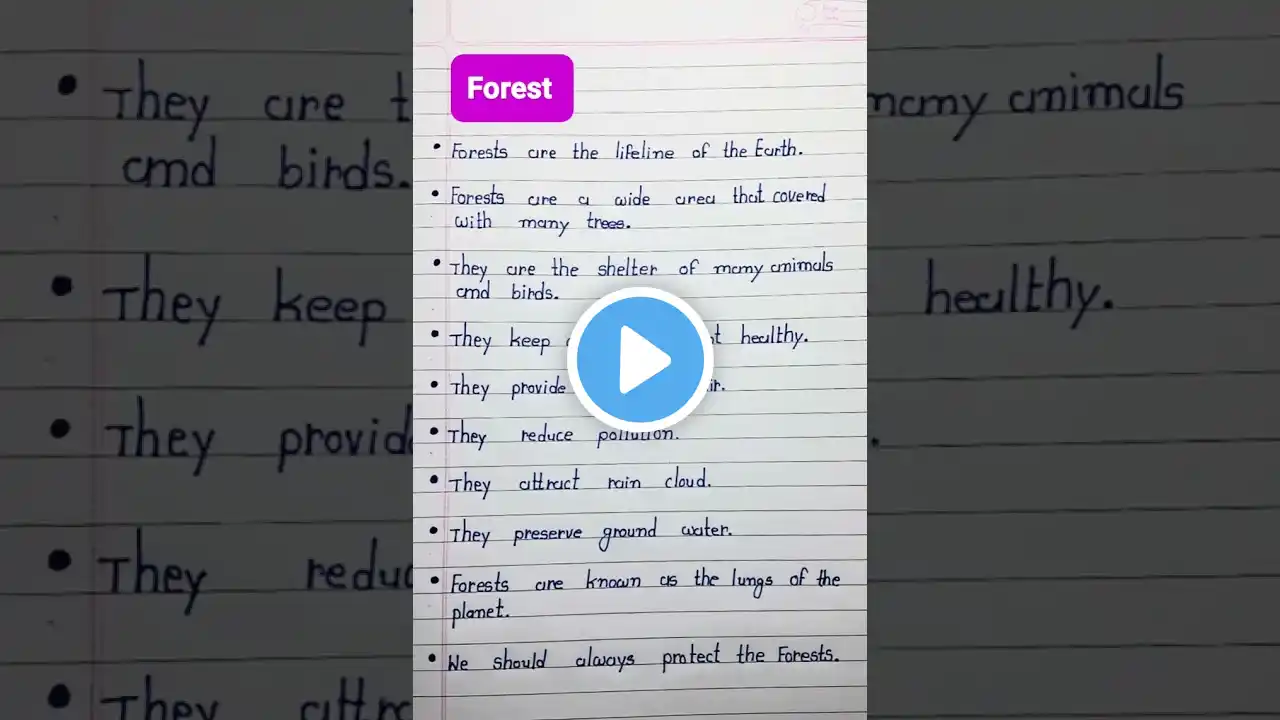 Forest
• Forests are the lifeline of the Earth.
• Forests are a wide area that covered
with many trees.
• They are the shelter of many animals
and birds.
• They keep healthy.
• They provide
• They reduce pollution.
• They attract rain cloud.
• They preserve ground water.
• Forests are known as the lungs of the
planet.
• We should always protect the Forests.
• They are many animals
and birds.
• They keep healthy.
• They
• They
• They